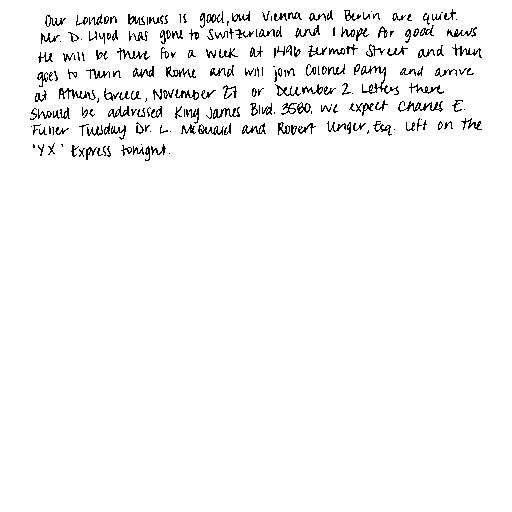 Our London business is good, but Vienna and Berlin are quiet.
Mr. D. Llyod has gone to Switzerland and I hope for good news
He will be there for a week at 1496 Zermott Street and then
goes to Turin and Rome and will join Colonel Parry and arrive
at Athens, Greece, November 27 or December 2. Letters there
Should be addressed King James Blvd. 3580. We expect Charles E.
Fuller Tuesday Dr. L. McQuaid and Robert Unger, Esq. Left on the
'YX' Express tonight.